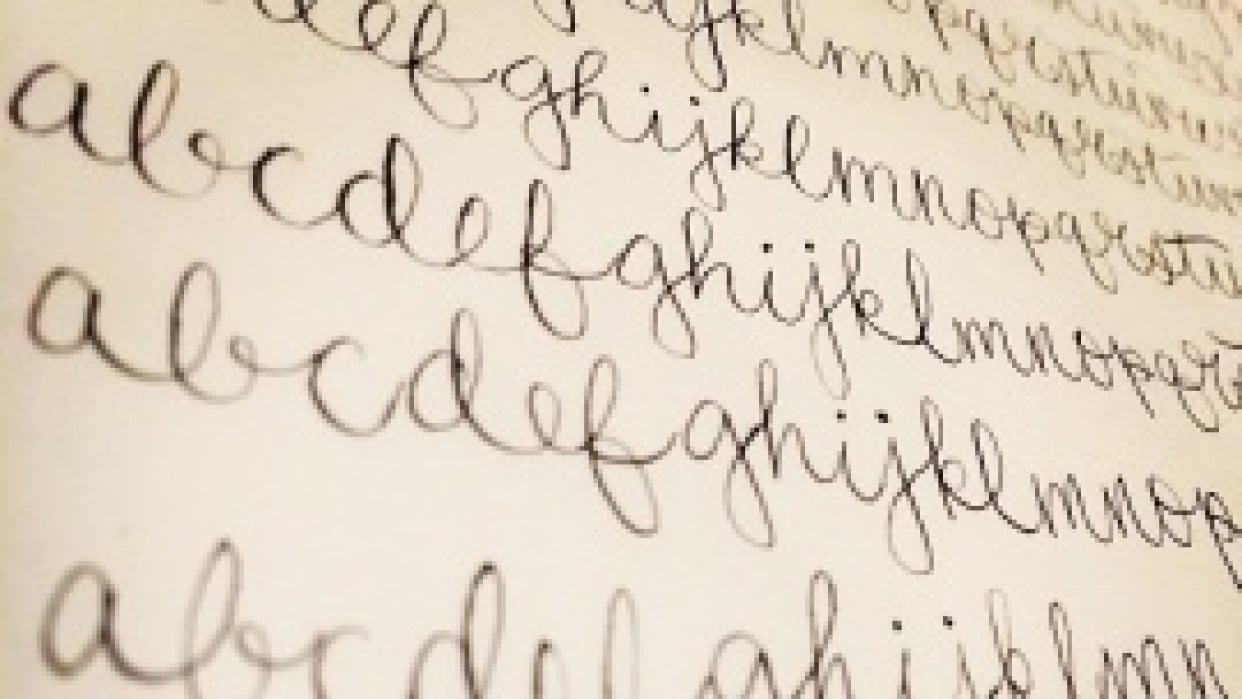 pqrstuvw
jklmnopqrstuv
efghijklmnopqrstu
abcdefghijklmnopqrs
abcdefghijklmnop
abcdefghijklmn